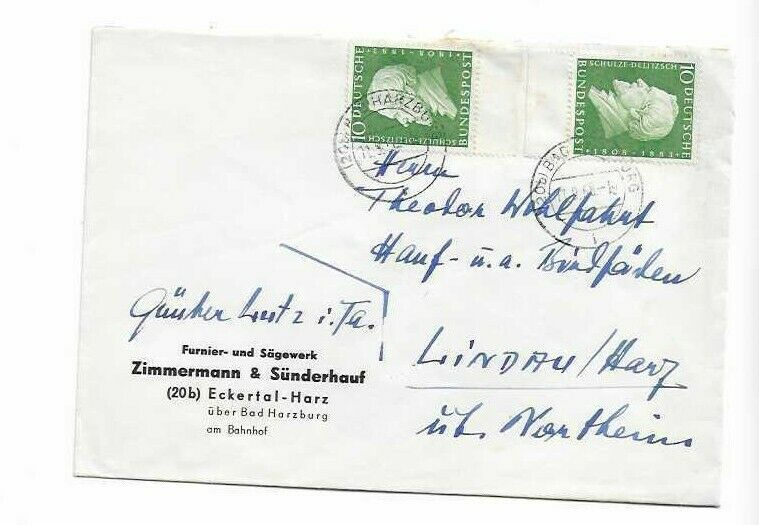 10 DEUTSCHE
BUNDESPOST
SCHULZE-DELITZSCH
1808-1883
10 DEUTSCHE
BUNDESPOST
SCHULZE-DELITZSCH
1808-1883
HARZBURG
(20b) BAD
Herrn
Theodor Wohlfahrt
Hanf- u.a. Bindfäden
LINDAU/Harz
üb. Northeim
Günther i. Fa.
Furnier- und Sägewerk
Zimmermann & Sünderhauf
(20b) Eckertal-Harz
über Bad Harzburg
am Bahnhof